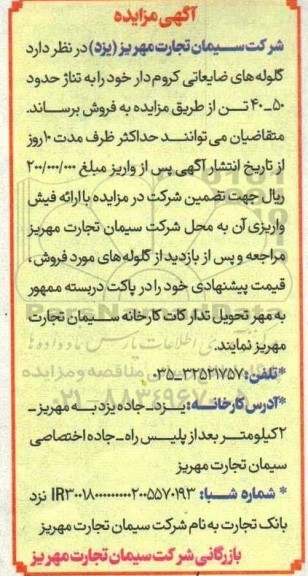 آگهی مزایده
شرکت سیمان تجارت مهریز (یزد) در نظر دارد
گلوله های ضایعاتی کروم دار خود را به تناژ حدود
۵۰_۴۰ تن از طریق مزایده به فروش برساند.
متقاضیان می توانند حداکثر ظرف مدت ۱۰ روز
از تاریخ انتشار آگهی پس از واریز مبلغ ۲۰۰/۰۰۰/۰۰۰
ریال جهت تضمین شرکت در مزایده با ارائه فیش
واریزی آن به محل شرکت سیمان تجارت مهریز
مراجعه و پس از بازدید از گلوله های مورد فروش ،
قیمت پیشنهادی خود را در پاکت دربسته ممهور
به مهر تحویل تدارکات کارخانه سیمان تجارت
مهریز نمایند.
*تلفن: ۳۲۵۲۱۷۵۷_۰۳۵
*آدرس کارخانه: یزد_جاده یزد به مهریز_
۲ کیلومتر بعد از پلیس راه_جاده اختصاصی
سیمان تجارت مهریز
* شماره شبا: IR۳۰۰۱۸۰۰۰۰۰۰۰۰۰۰۲۰۰۵۵۷۰۱۹۳ نزد
بانک تجارت به نام شرکت سیمان تجارت مهریز
بازرگانی شرکت سیمان تجارت مهریز